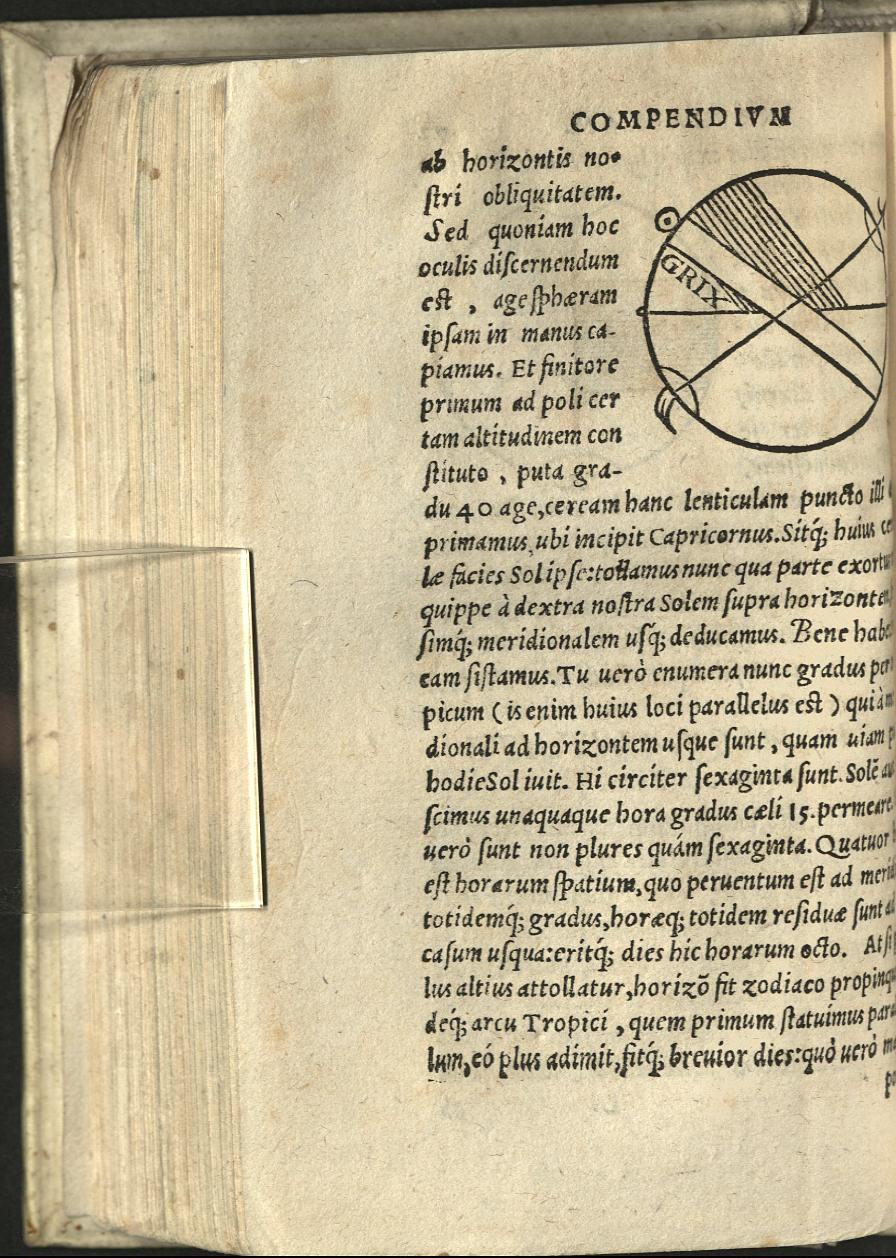 COMPENDIVM
ab horizontis no-
ſtri obliquitatem.
Sed quoniam hoc
oculis diſcernendum
eſt , age ſphæram
ipſam in manus ca-
piamus. Et finitore
primum ad poli cer
tam altitudinem con
ſtituto , puta gra-
GRIX
du 40 age,ceream hanc lenticulam puncto illi
primamus,ubi incipit Capricornus.Sitq́; huius ce
læ facies Sol ipſe:tollamus nunc qua parte exortu
quippe à dextra noſtra Solem ſupra horizonte
ſimq́; meridionalem uſq́; deducamus. Bene habe
eam ſiſtamus.Tu uerò enumera nunc gradus per
picum ( is enim huius loci parallelus eſt ) qui à m
dionali ad horizontem uſque ſunt , quam uiam p
hodie Sol iuit. Hi circiter ſexaginta ſunt. Solẽ au
ſcimus unaquaque hora gradus cæli 15.permeare
uerò ſunt non plures quám ſexaginta. Quatuor
eſt horarum ſpatium,quo peruentum eſt ad merid
totidemq́; gradus,horæq́; totidem reſiduæ ſunt ad
caſum uſqua:eritq́; dies hic horarum octo. At ſi
lus altius attollatur,horizõ fit zodiaco propinqu
deq́; arcu Tropici , quem primum ſtatuimus para
lum,eó plus adimit,fitq́; breuior dies:quò uerò ma